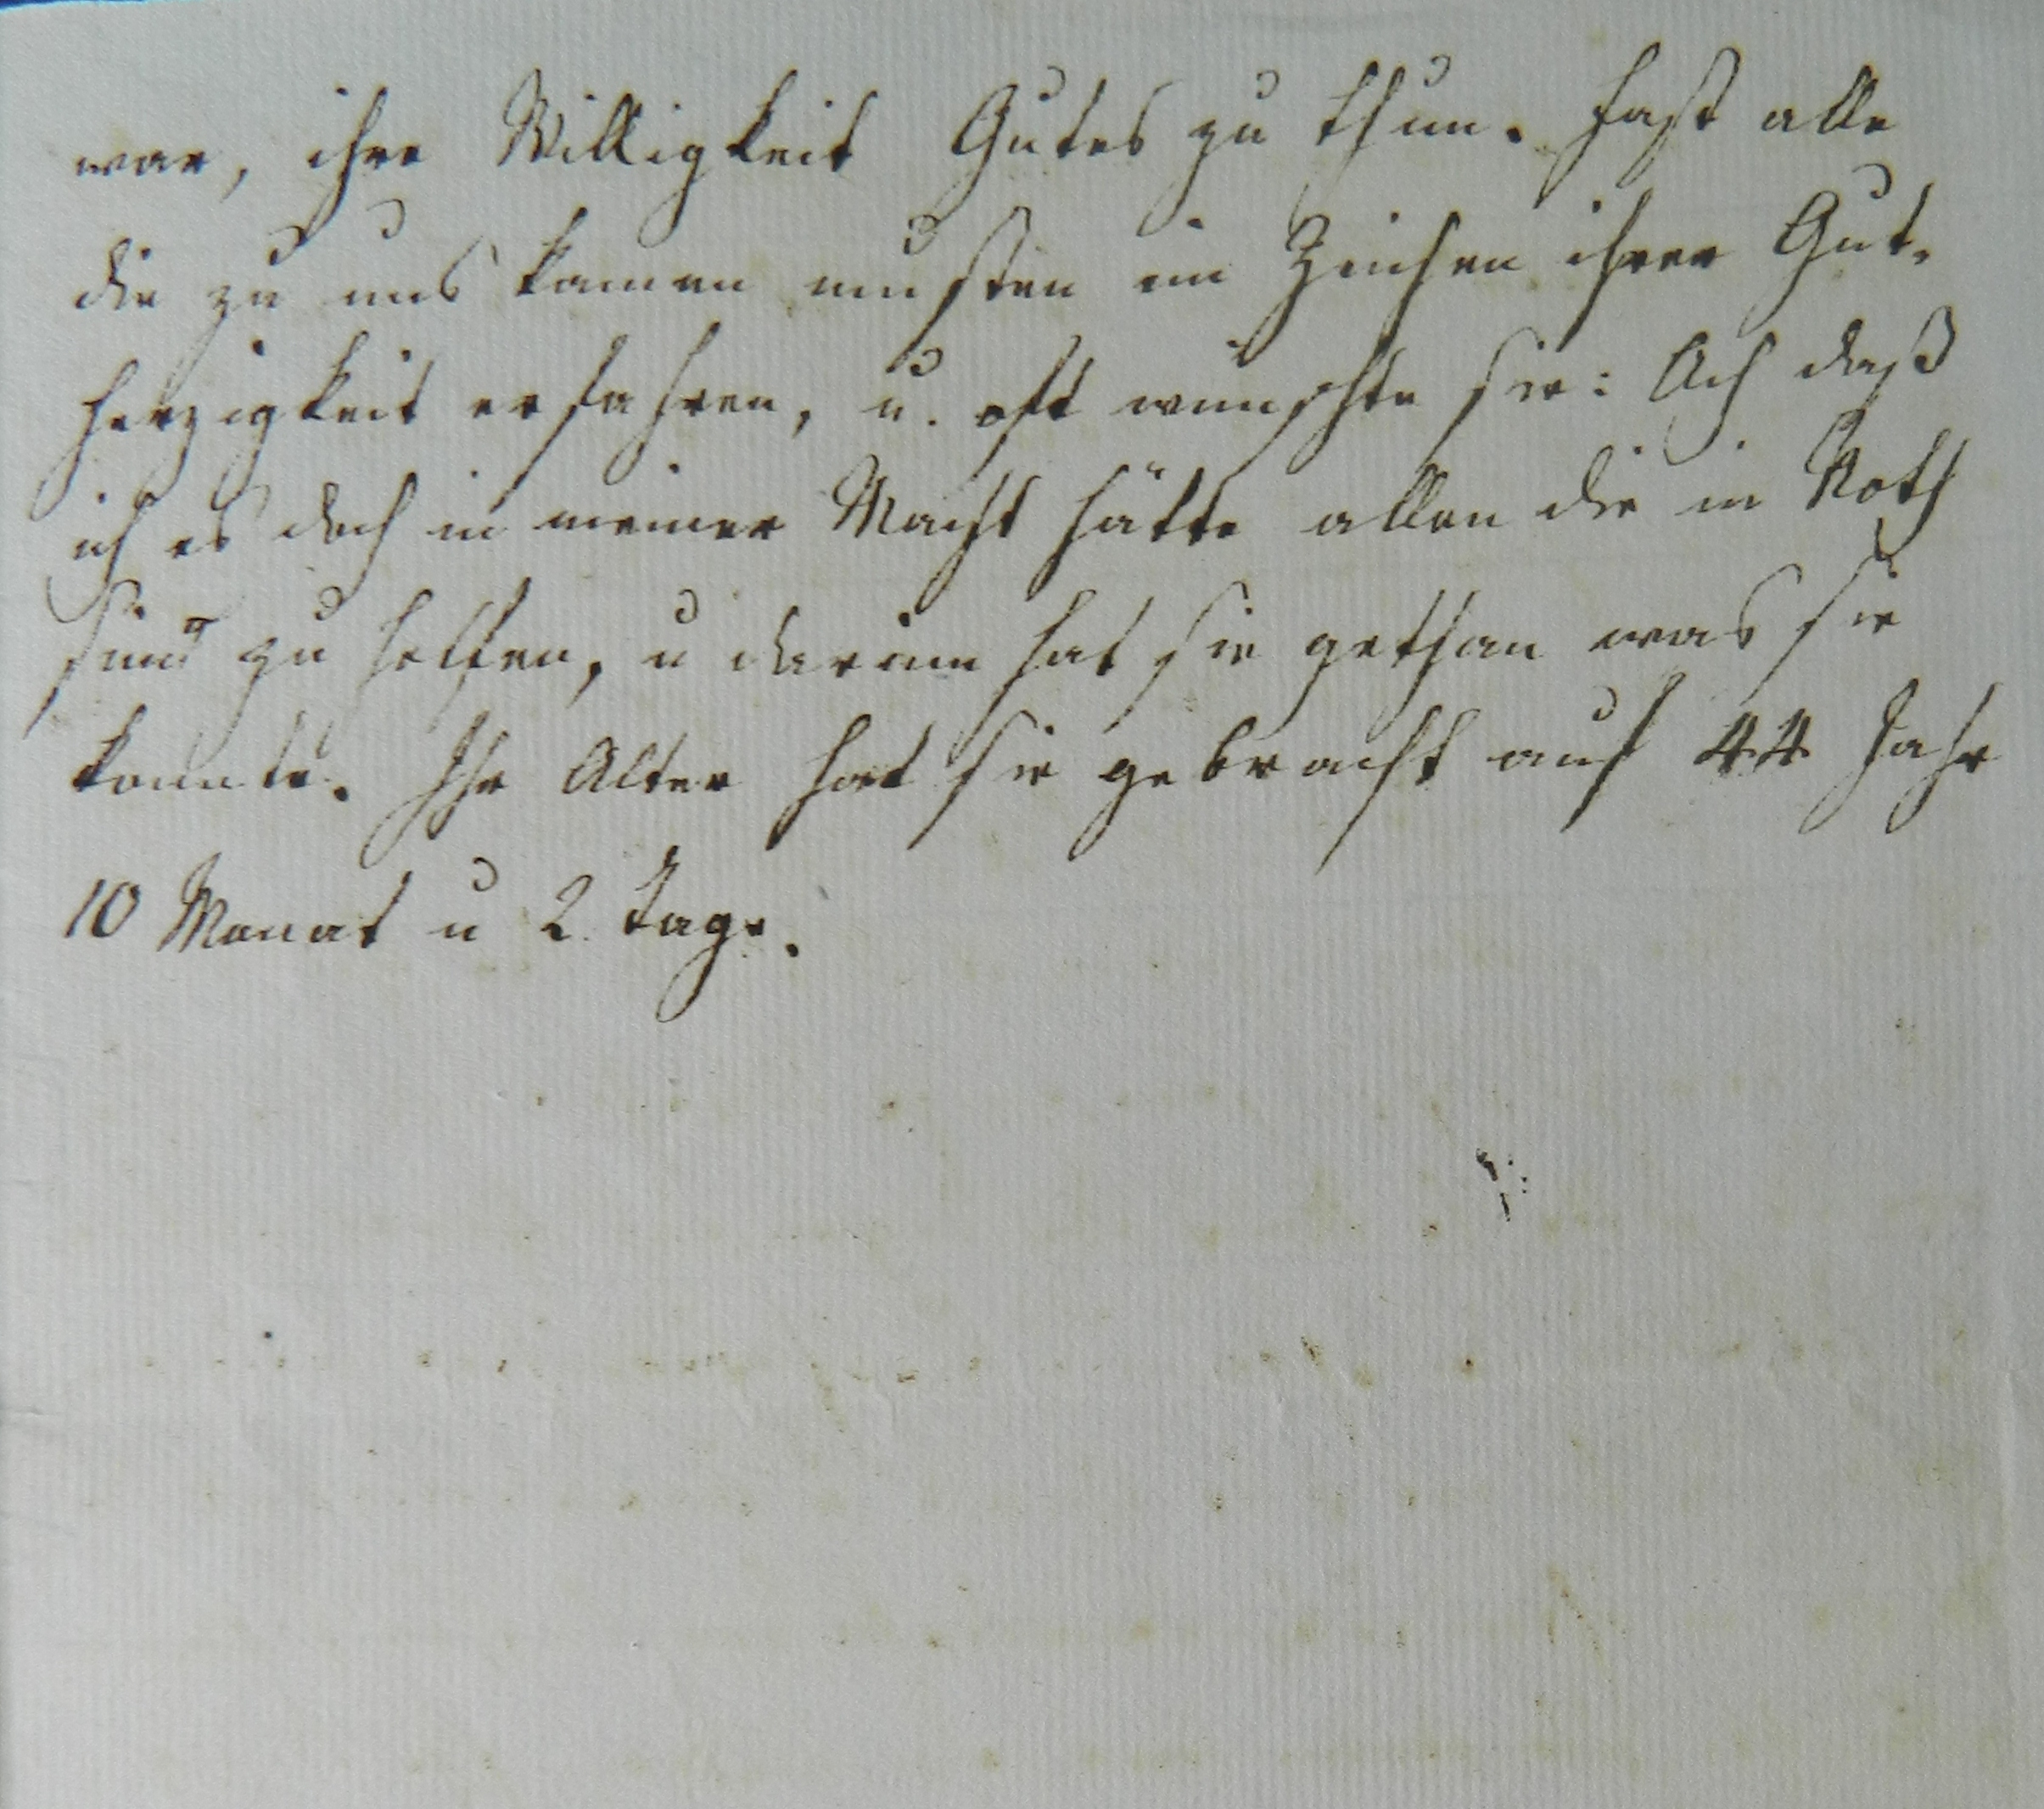 war, ihre Willigkeit Gutes zu thun. Fast alle
die zu uns kamen musten ein Zeichen ihrer Gut-
herzigkeit erfahren, u. oft wünschte sie: Ach daß
ich es doch in meiner Macht hätte allen die in Noth
sind zu helfen, u darinn hat sie gethan was sie
konnte. Ihr Alter hat sie gebracht auf 44 Jahr
10 Monat u 2 Tage.